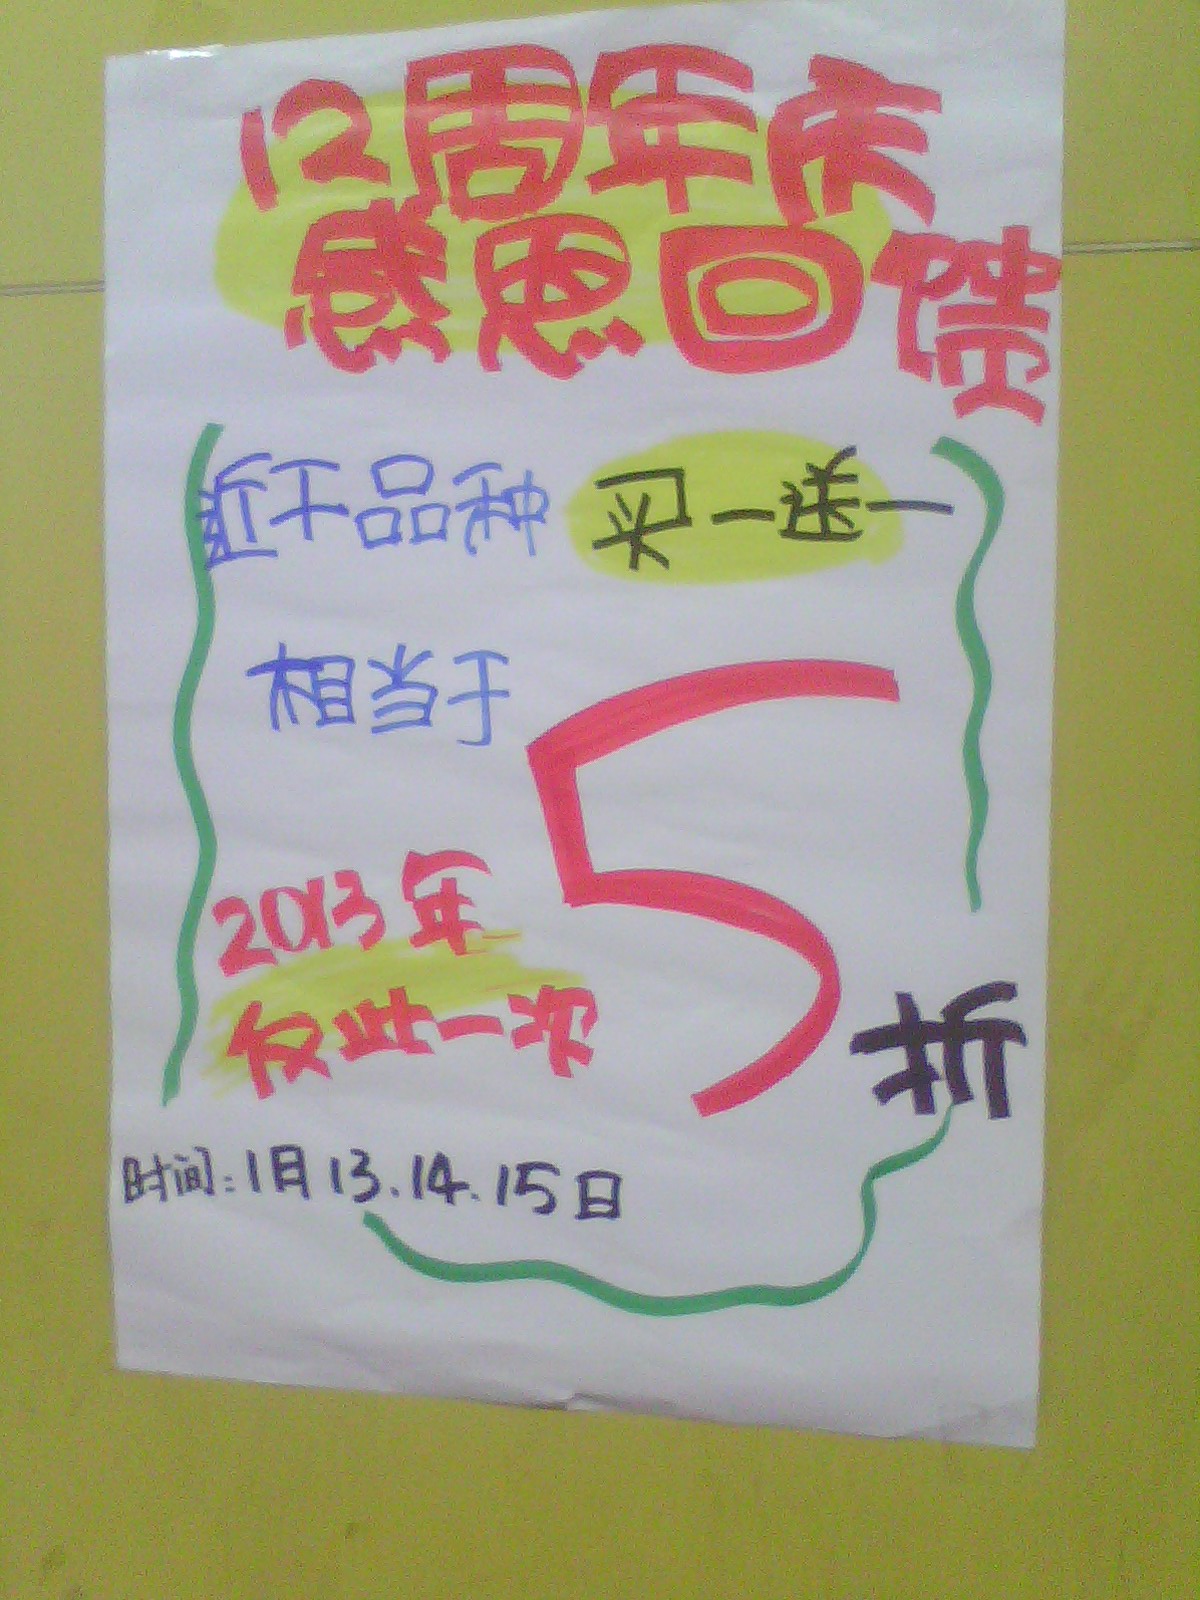 12周年庆
感恩回馈
近千品种 买一送一
相当于 5折
2013年
仅此一次
时间:1月13.14.15日